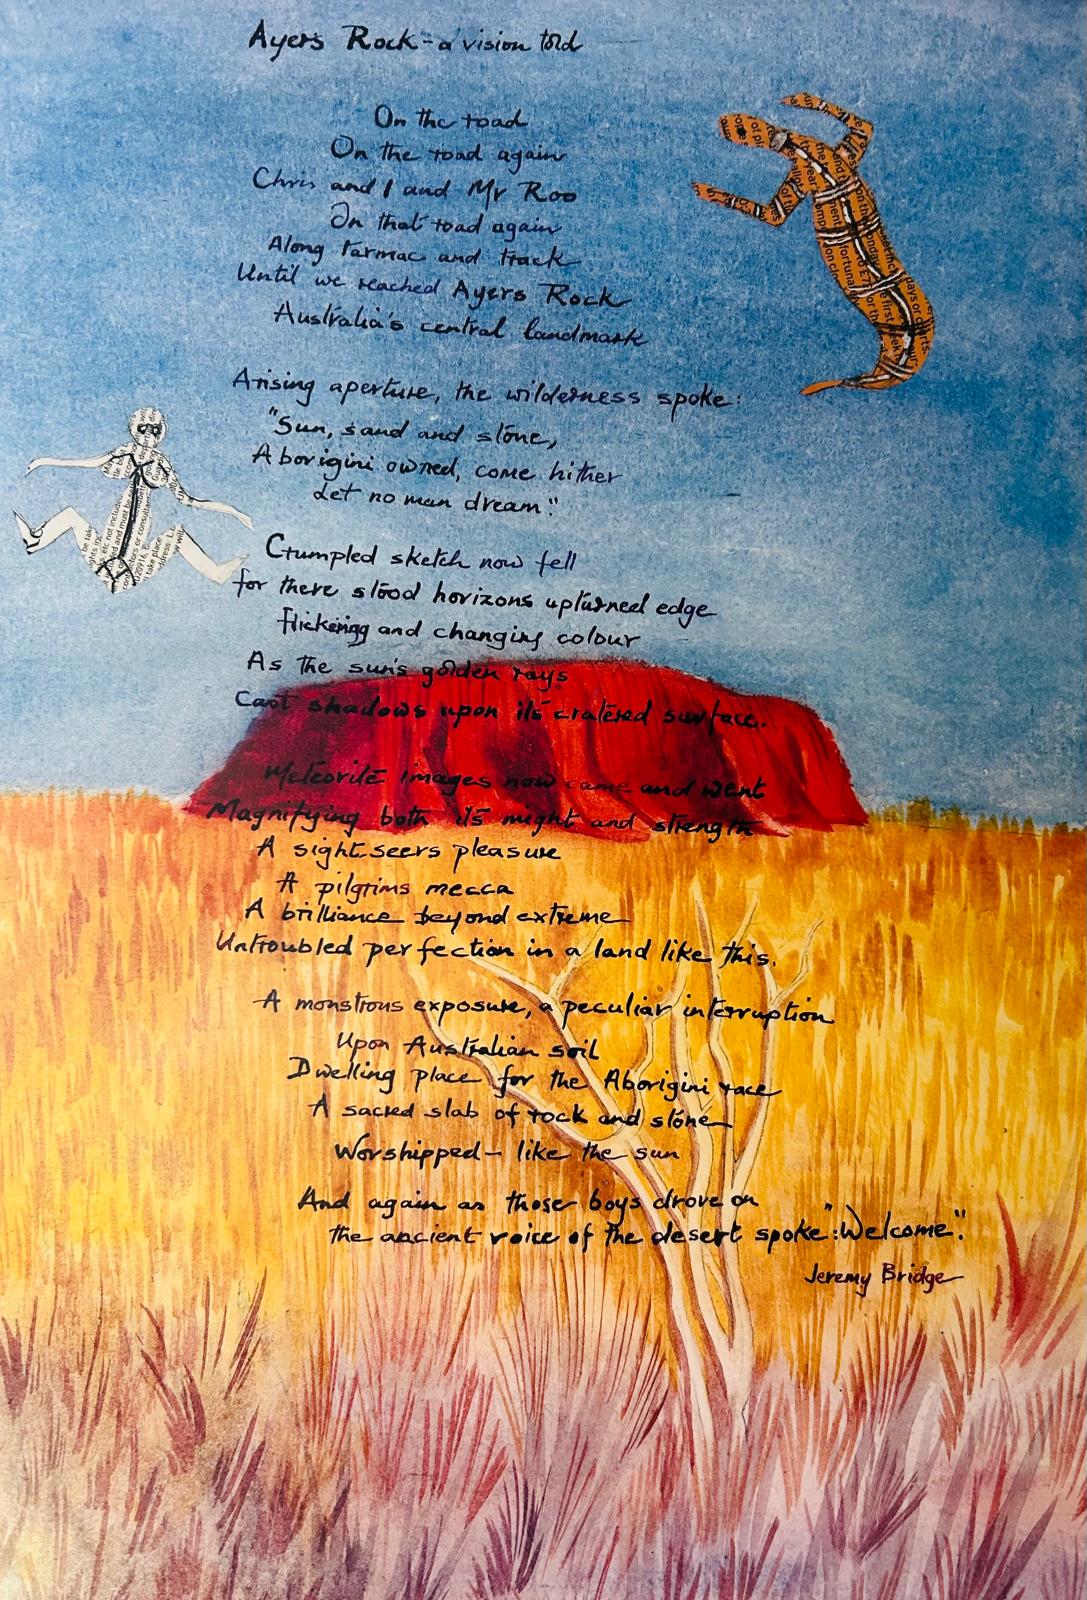 Ayers Rock - a vision told
On the road
On the road again
Chris and I and Mr Roo
On that road again
Along tarmac and track
Until we reached Ayers Rock
Australia's central landmark
Arising aperture, the wilderness spoke:
"Sun, sand and stone,
Aborigini owned, come hither
Let no man dream."
Crumpled sketch now fell
for there stood horizons upturned edge
flickering and changing colour
As the sun's golden rays
Cast shadows upon its cratered surface.
Meteorite images now came and went
Magnifying both its might and strength
A sight-seers pleasure
A pilgrims mecca
A brilliance beyond extreme
Untroubled perfection in a land like this.
A monstrous exposure, a peculiar interruption
Upon Australian soil
Dwelling place for the Aborigini race
A sacred slab of rock and stone
Worshipped - like the sun
And again as those boys drove on
the ancient voice of the desert spoke": Welcome."
Jeremy Bridge